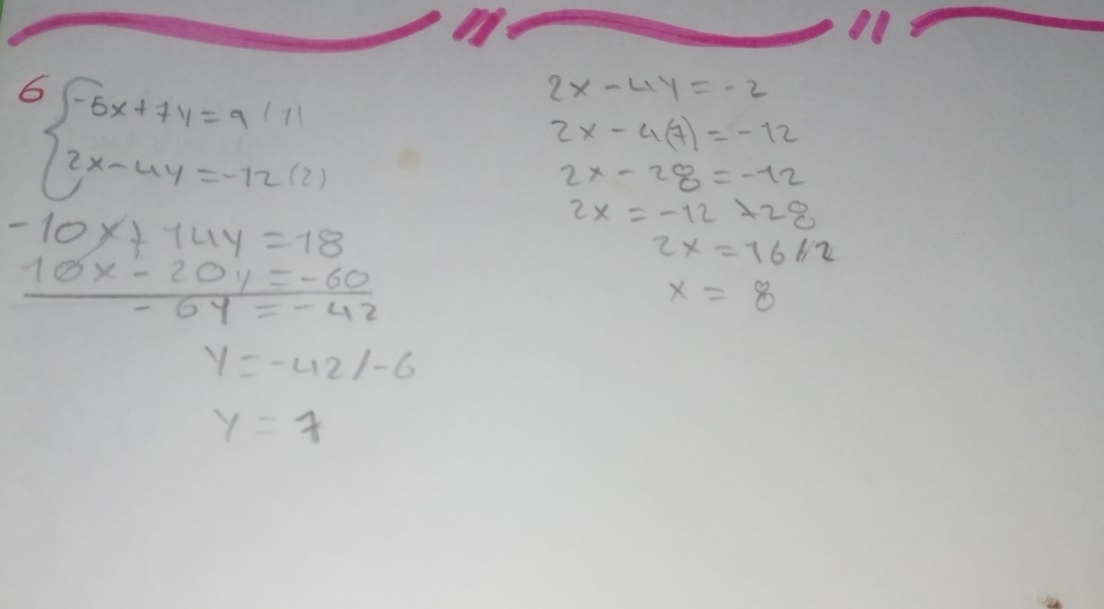 6 { -5x+7y=9 (1)
2x-4y=-12 (2)
-10x+14y=18
10x-20y=-60
-6y=-42
y=-42/-6
y=7
2x-4y=-2
2x-4(7)=-12
2x-28=-12
2x=-12+28
2x=16/2
x=8